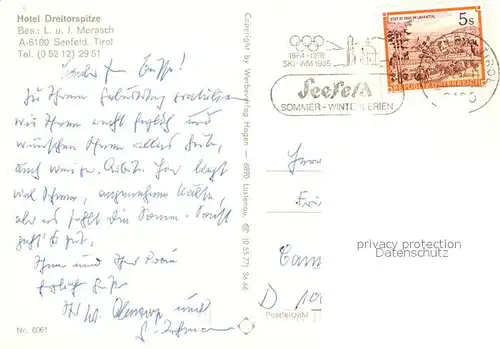 Hotel Dreitorspitze
Bes.: L. u. I. Marasch
A-6100 Seefeld, Tirol
Tel. (0 52 12) 29 51
Zu Ihrem Geburtstag gratulieren
wir Ihnen recht herzlich und
wünschen Ihnen alles Gute,
auch weniger Arbeit. Hier liegt
viel Schnee, angenehme Kälte,
aber es fehlt die Sonne. Sonst
geht's gut.
Ihnen und Ihrer Frau
herzliche Grüße
Ihr
und
Nr. 6061
Copyright by Werbeverlag Hagen — 6890 Lustenau, (0 55 77) 36 66
1964-1976
SKI-WM 1985
Seefeld
SOMMER - WINTERFERIEN
5s
STIFT ST. PAUL IM LAVANTTAL
REPUBLIK ÖSTERREICH
TIROL
Herrn
D 100
Postleitzahl
privacy protection
Datenschutz